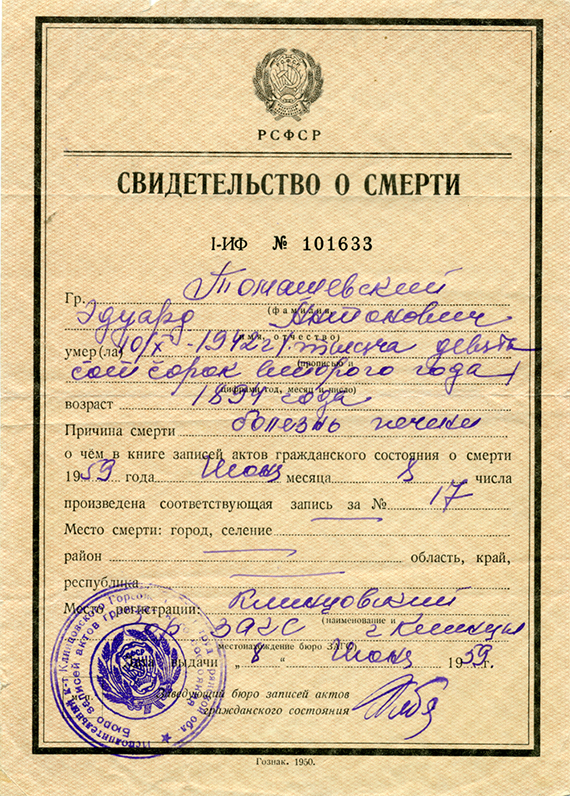 РСФСР
СВИДЕТЕЛЬСТВО О СМЕРТИ
I-ИФ № 101633
Гр. Томашевский
(фамилия,
Эдуард Антонович
имя, отчество)
умер(ла) 10/X - 1942 г. тысяча девять
(прописью и
сот сорок второго года
цифрами год, месяц и число)
возраст 1894 года
Причина смерти болезнь печени
о чём в книге записей актов гражданского состояния о смерти
1959 года месяца 8 числа
произведена соответствующая запись за № 17
Место смерти: город, селение
район область, край,
республика
Место регистрации: Клинцовский
(наименование и
ЗАГС г. Клинцы
местонахождение бюро ЗАГС)
выдачи „ 8 “ 1959 г.
Заведующий бюро записей актов
гражданского состояния
Бюро записей актов
Гознак. 1950.